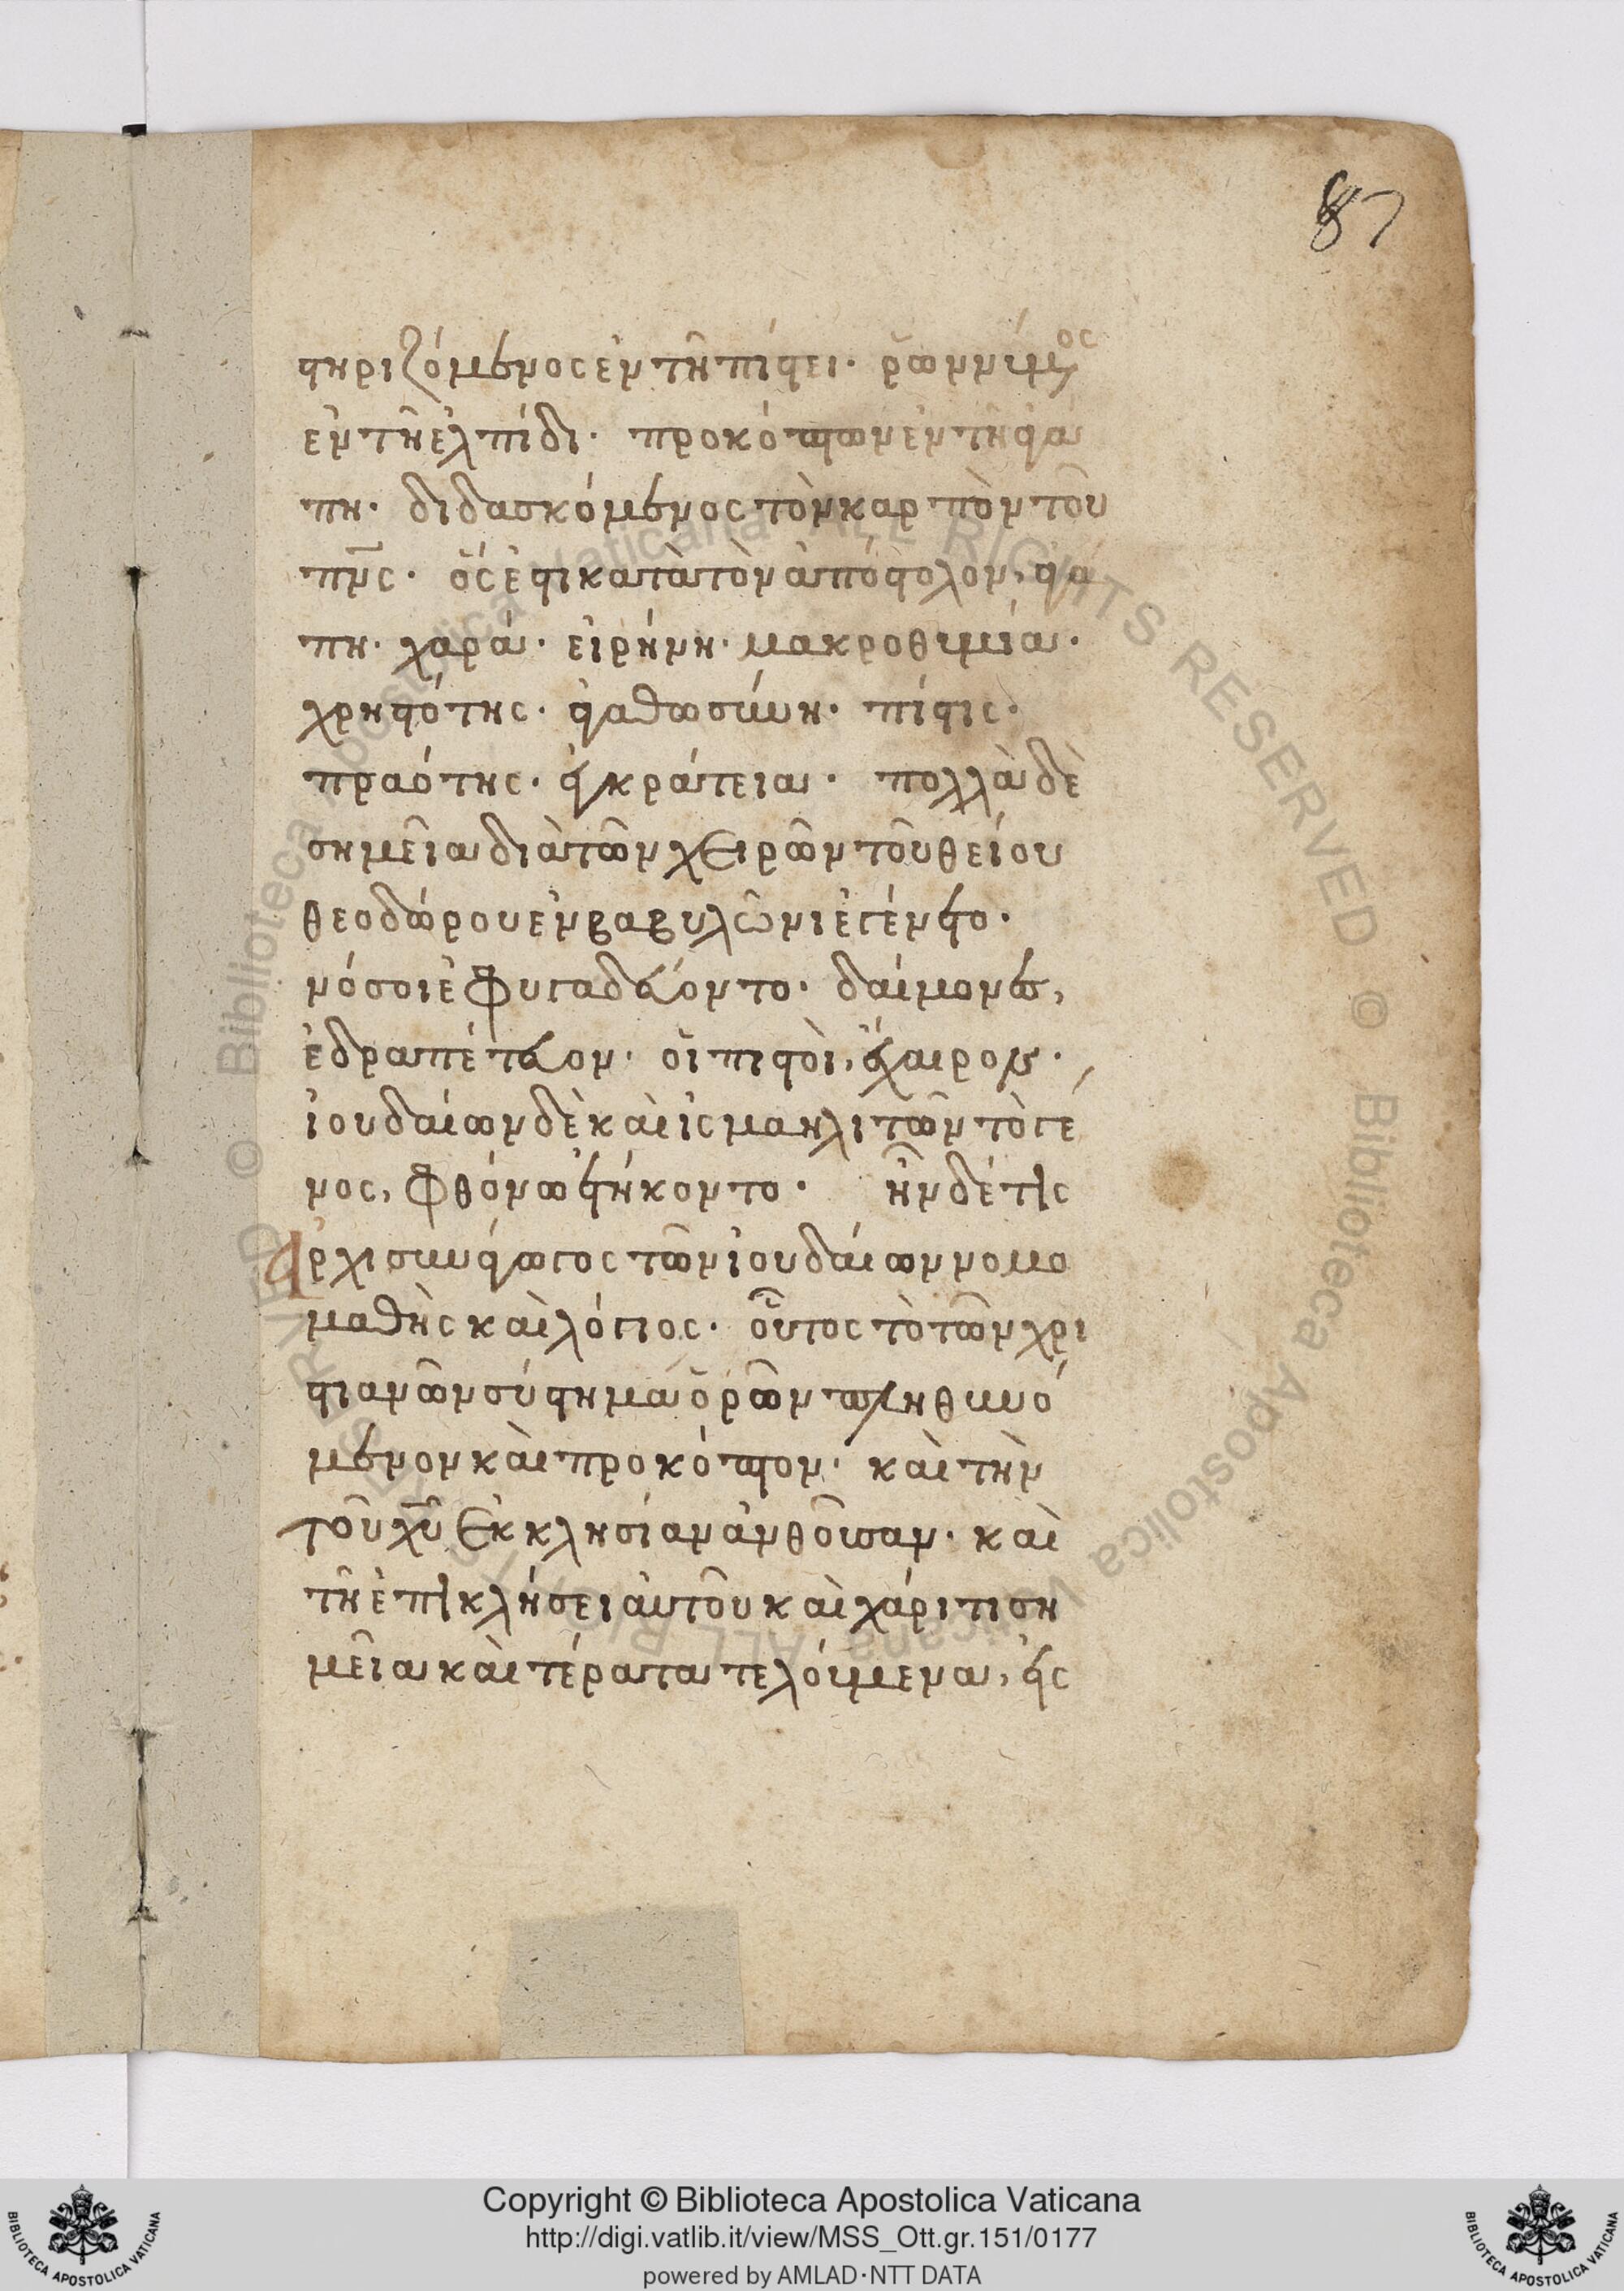 87
στηριζόμενος ἐν τῆ πίστει· ῥωννύμενος
ἐν τῆ ἐλπίδι· προκόπτων ἐν τῆ ἀγά
πη· διδασκόμενος τὸν καρπὸν τοῦ
πν̅ς· ὅς ἐστι κατὰ τὸν ἀπόστολον, ἀγά
πη· χαρά· εἰρήνη· μακροθυμία·
χρηστότης· ἀγαθωσύνη· πίστις·
πραότης· ἐγκράτεια· πολλὰ δὲ
σημεῖα διὰ τῶν χειρῶν τοῦ θείου
θεοδώρου ἐν βαβυλῶνι ἐγένετο·
νόσοι ἐφυγαδεύοντο· δαίμονες,
ἐδραπέτευον· οἱ πιστοὶ, ἔχαιρον·
ἰουδαίων δὲ καὶ ἰσμαηλιτῶν τὸ γέ
νος, φθόνω ἐτήκοντο· ἦν δέ τις
ἀρχισυνάγωγος τῶν ἰουδαίων νομο
μαθὴς καὶ λόγιος· οὗτος τὸ τῶν χρι
στιανῶν σύστημα ὁρῶν πληθυνό
μενον καὶ προκόπτον· καὶ τὴν
τοῦ χ̅υ ἐκκλησίαν ἀνθοῦσαν· καὶ
τῆ ἐπικλήσει αὐτοῦ καὶ χάριτι ση
μεῖα καὶ τέρατα τελούμενα, εἰς
© Biblioteca Apostolica Vaticana ALL RIGHTS RESERVED
© Biblioteca Apostolica Vaticana ALL RIGHTS RESERVED
Copyright © Biblioteca Apostolica Vaticana
http://digi.vatlib.it/view/MSS_Ott.gr.151/0177
powered by AMLAD·NTT DATA
BIBLIOTECA APOSTOLICA VATICANA
BIBLIOTECA APOSTOLICA VATICANA